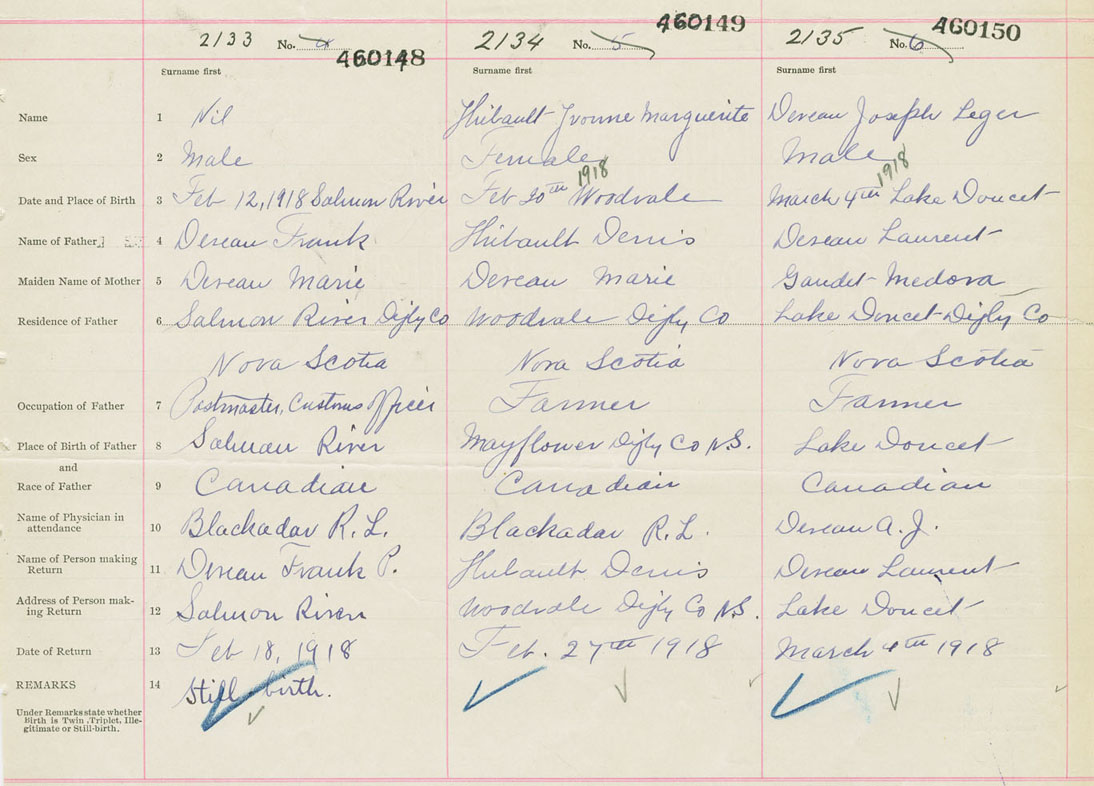 2133 No. 4 460148 2134 No. 5 460149 2135 No. 6 460150
Surname first Surname first Surname first
Name 1 Nil Thibault Yvonne Marguerite Deveau Joseph Leger
Sex 2 Male Female Male
1918 1918
Date and Place of Birth 3 Feb 12, 1918 Salmon River Feb 20th Woodvale March 4th Lake Doucet
Name of Father 4 Deveau Frank Thibault Denis Deveau Laurent
Maiden Name of Mother 5 Deveau Marie Deveau Marie Gaudet Medora
Residence of Father 6 Salmon River Digby Co Woodvale Digby Co Lake Doucet Digby Co
Nova Scotia Nova Scotia Nova Scotia
Occupation of Father 7 Postmaster, Customs officer Farmer Farmer
Place of Birth of Father 8 Salmon River Mayflower Digby Co N.S. Lake Doucet
and
Race of Father 9 Canadian Canadian Canadian
Name of Physician in
attendance 10 Blackadar R. L. Blackadar R. L. Deveau A. J.
Name of Person making
Return 11 Deveau Frank P. Thibault Denis Deveau Laurent
Address of Person mak-
ing Return 12 Salmon River Woodvale Digby Co N.S. Lake Doucet
Date of Return 13 Feb 18, 1918 Feb. 27th 1918 March 4th 1918
REMARKS 14 Still birth.
Under Remarks state whether
Birth is Twin, Triplet, Ille-
gitimate or Still-birth.